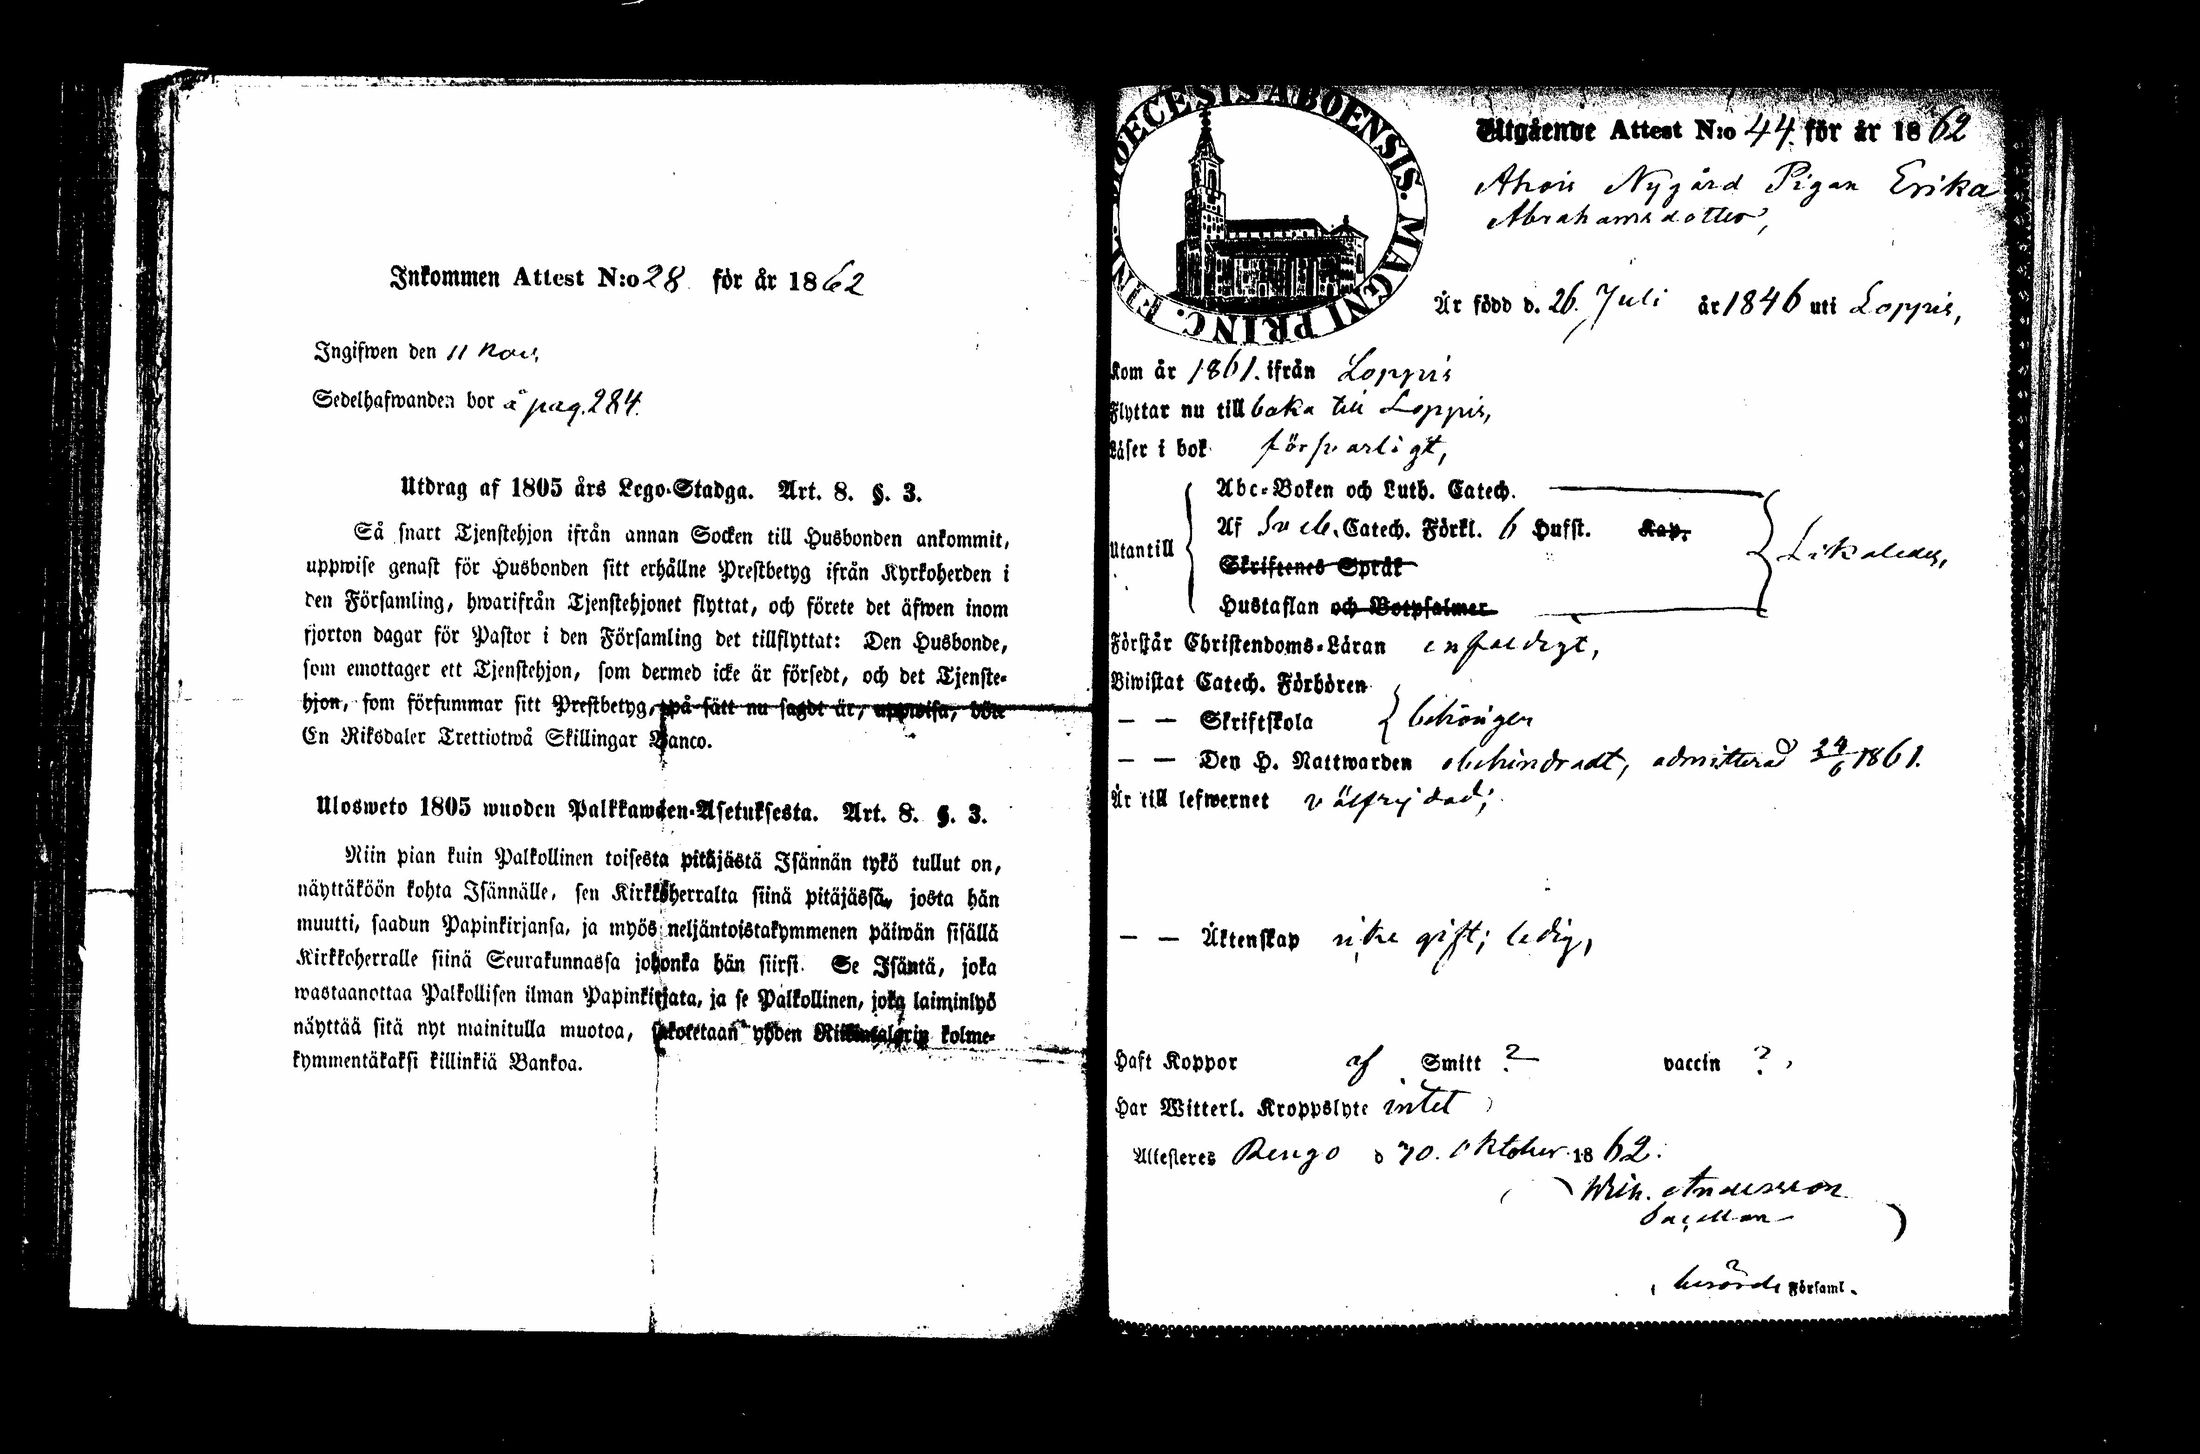 Inkommen Attest N:o 28 för år 1862
Ingifwen den 11 Nov.
Sedelhafwanden bor å pag. 284.
Utdrag af 1805 års Lego-Stadga. Art. 8. §. 3.
Så snart Tjenstehjon ifrån annan Socken till Husbonden ankommit,
uppwise genast för Husbonden sitt erhållne Prestbetyg ifrån Kyrkoherden i
den Församling, hwarifrån Tjenstehjonet flyttat, och förete det äfwen inom
fjorton dagar för Pastor i den Församling det tillflyttat: Den Husbonde,
som emottager ett Tjenstehjon, som dermed icke är försedt, och det Tjenste-
hjon, som försummar sitt Prestbetyg, på sätt nu sagdt är, uppwisa, böte
En Riksdaler Trettiotwå Skillingar Banco.
Ulosweto 1805 wuoden Palkkawäen-Asetuksesta. Art. 8. §. 3.
Niin pian kuin Palkollinen toisesta pitäjästä Isännän tykö tullut on,
näyttäköön kohta Isännälle, sen Kirkkoherralta siinä pitäjässä, josta hän
muutti, saadun Papinkirjansa, ja myös neljäntoistakymmenen päiwän sisällä
Kirkkoherralle siinä Seurakunnassa johonka hän siirsi. Se Isäntä, joka
wastaanottaa Palkollisen ilman Papinkirjata, ja se Palkollinen, joka laiminlyö
näyttää sitä nyt mainitulla muotoa, sakotetaan yhden Riikintalarin kolme-
kymmentäkaksi killinkiä Bankoa.
DIOECESIS ABOENSIS. MAGNI PRINC. FINL.
Utgående Attest N:o 44. för år 1862
Ahois Nygård Pigan Erika
Abrahamsdotter,
Är född d. 26. Juli år 1846 uti Loppis,
Kom år 1861. ifrån Loppis
Flyttar nu till baka till Loppis,
Läser i bok försvarligt,
Abc-Boken och Luth. Catech.
Utantill Af Sveb. Catech. Förkl. 6 Hufst. Kap. Likaledes,
Skriftenes Språk
Hustaflan och Botpsalmer
Förstår Christendoms-Läran enfaldigt,
Biwistat Catech. Förhören
— — Skriftskola behörigen
— — Den H. Nattwarden obehindradt, admitterad 24/6 1861.
Är till lefwernet välfrejdad;
— — Äktenskap icke gift; ledig,
Haft Koppor af Smitt ? vaccin ?,
Har Witterl. Kroppslyte intet
Attesteres Rengo d 30. Oktober 1862.
Wilh. Andersson
Capellan
berörde Församl.